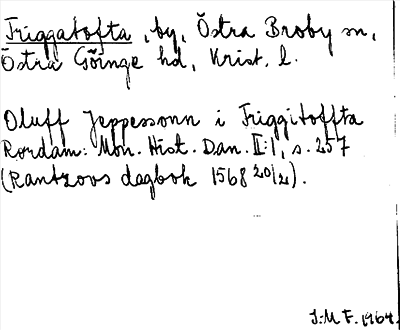 Friggatofta, by, Östra Broby sn,
Östra Göinge hd, Krist. l.
Oluff Jeppessonn i Friggitoffta
Rordam: Mon. Hist. Dan. II:1, s. 257
(Rantzovs dagbok 1568 20/2).
J:M F. 1964.